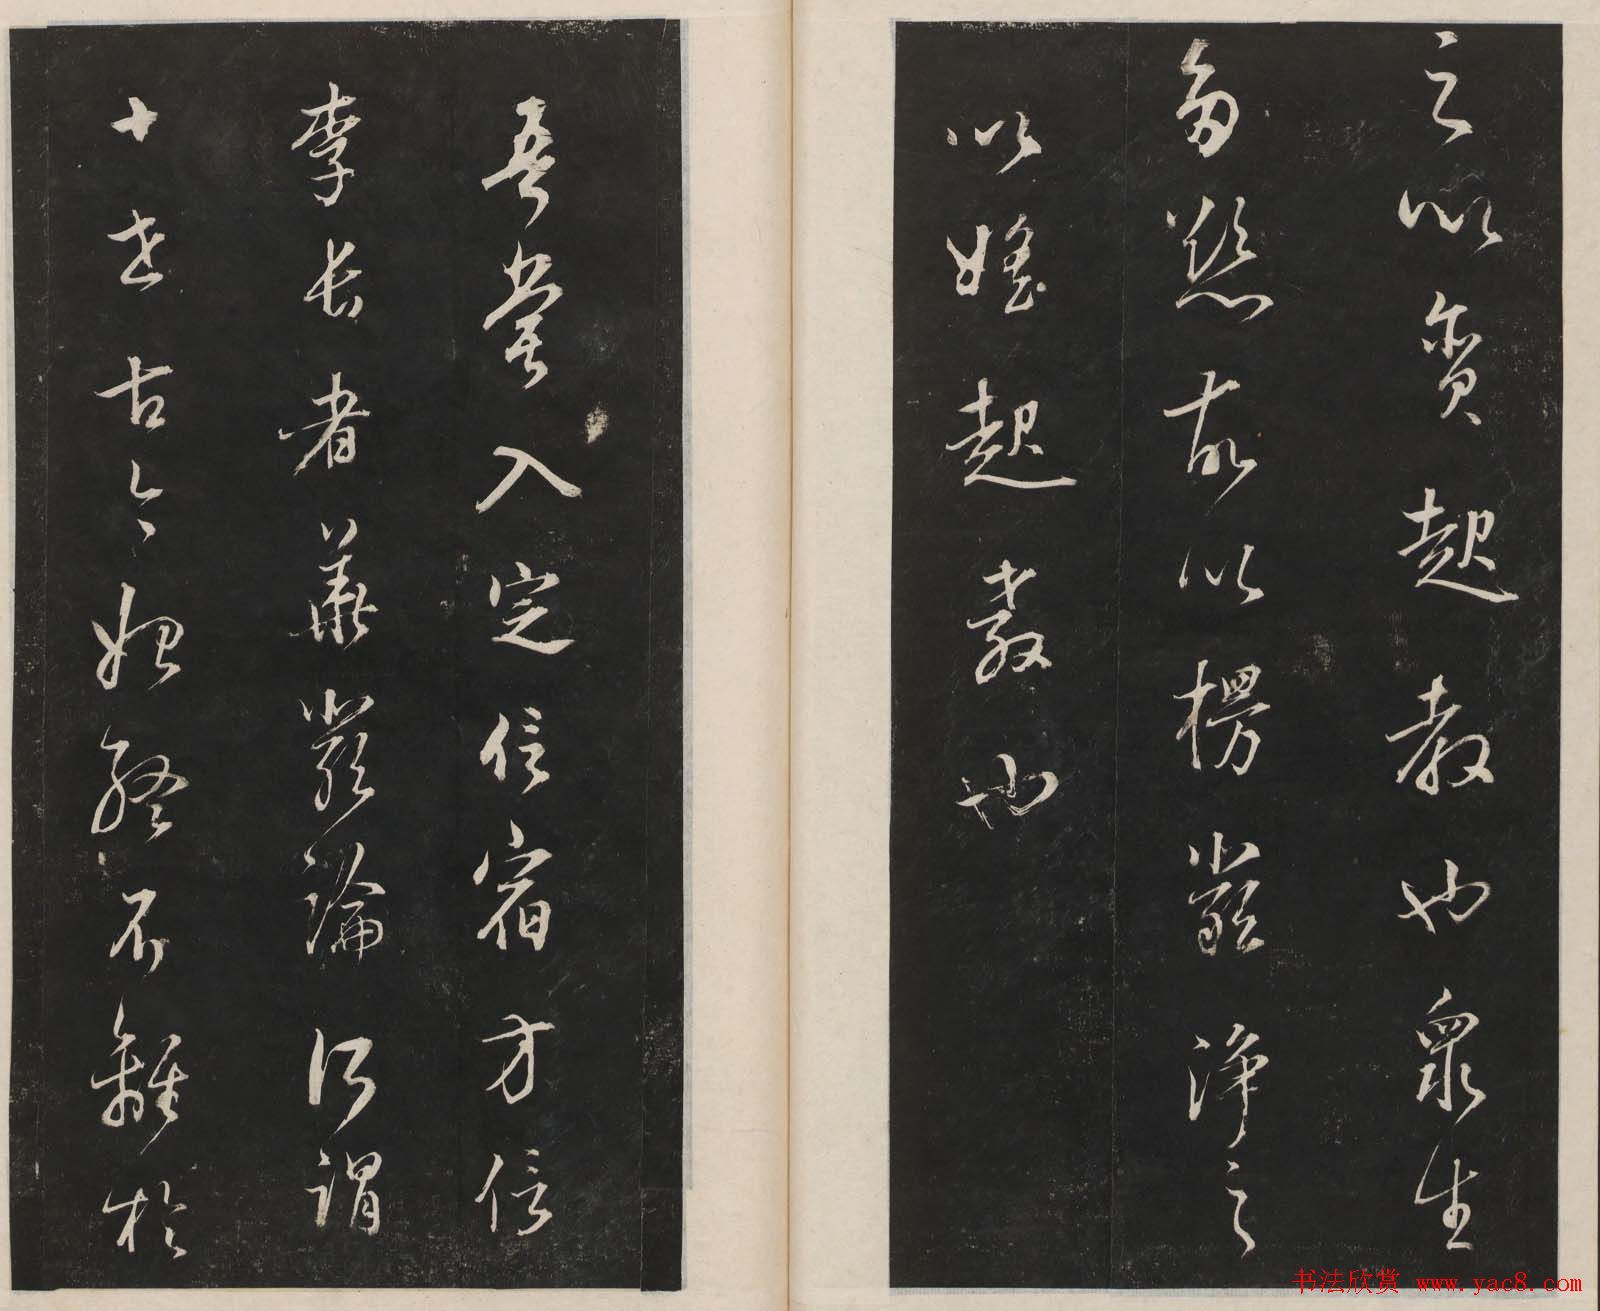 之以貪起教也衆生
多慾故以楞嚴淨之
以婬起教也
吾嘗入定信宿方信
李長者華嚴論所謂
十世古今始終不離於
书法欣赏 www.yac8.com